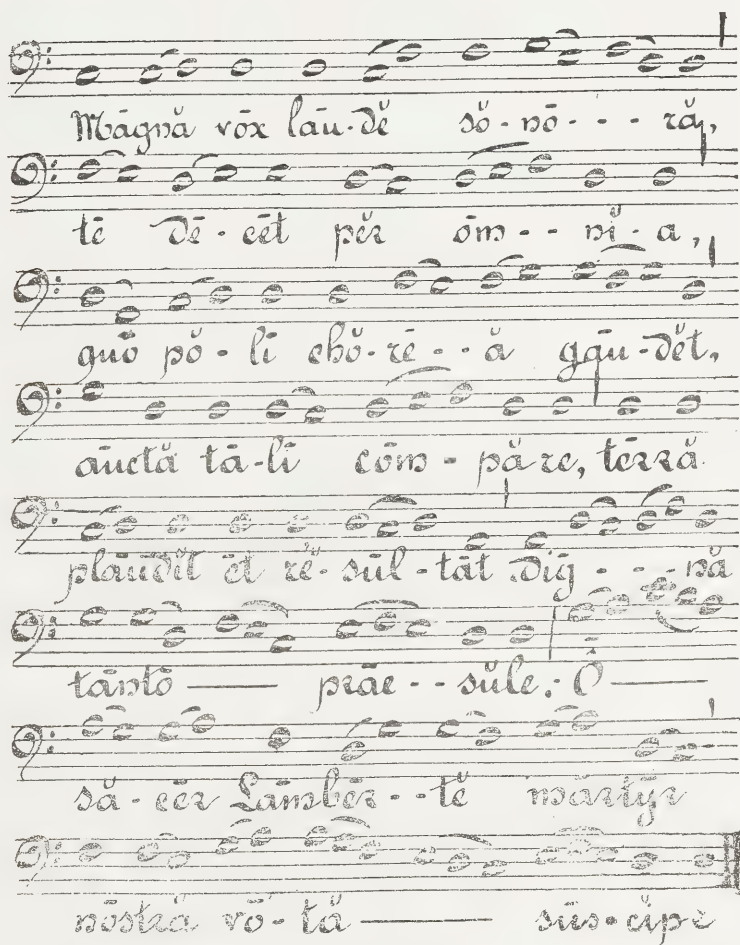 Māgnă vōx lāu-dĕ sŏ-nō - - - ră,
tē dĕ-cēt pĕr ōm - - nĭ-a,
quō pŏ-lī chŏ-rē - - ă gāu-dĕt,
āuctă tā-lī cōm - păre, tērră
plāudĭt ēt rĕ-sūl-tāt dīg - - - nă
tāntō —— prāe - - sŭle: Ô ——
să-cēr Lāmbēr - - tĕ mārtўr
nōstră vō-tă —— sūs-cĭpe